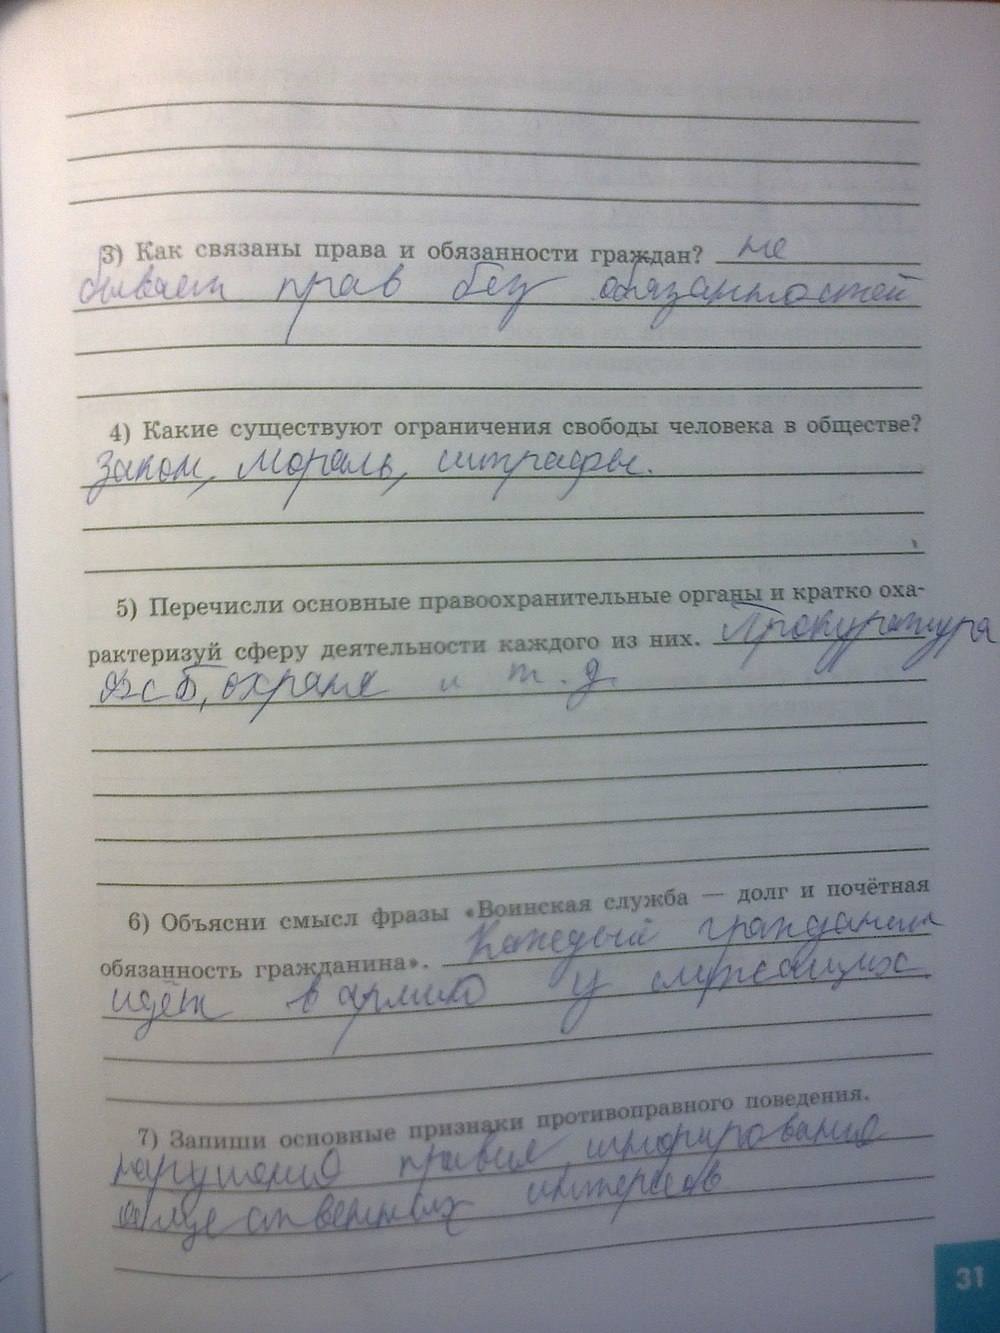 3) Как связаны права и обязанности граждан? не
бывает прав без обязанностей
4) Какие существуют ограничения свободы человека в обществе?
Закон, Мораль, штрафы.
5) Перечисли основные правоохранительные органы и кратко оха-
рактеризуй сферу деятельности каждого из них. Прокуратура
ФСБ, охрана и т. д.
6) Объясни смысл фразы «Воинская служба — долг и почётная
обязанность гражданина». Каждый гражданин
идёт в армию
7) Запиши основные признаки противоправного поведения.
нарушение правил, игнорирование
общественных интересов
31